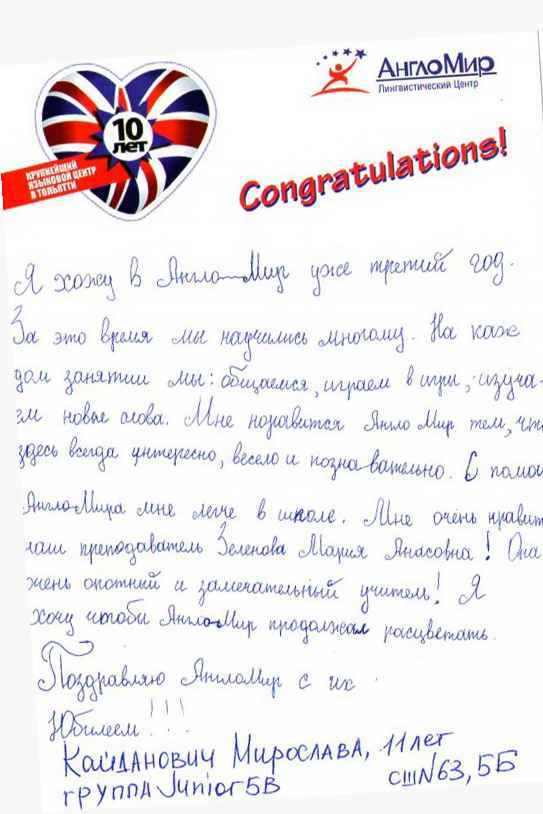 АнглоМир
Лингвистический Центр
10
лет
КРУПНЕЙШИЙ
ЯЗЫКОВОЙ ЦЕНТР
В ТОЛЬЯТТИ
Congratulations!
Я хожу в Англо-Мир уже третий год.
За это время мы научились многому. На каж
дом занятии мы: общаемся, играем в игры, изуча-
ем новые слова. Мне норавится Англо Мир тем, что
здесь всегда интересно, весело и позновательно. С помощ
АнглоМира мне легче в школе. Мне очень нравит
наш преподаватель Зеленова Мария Анасовна! Она
очень опотний и замечательный учитель! Я
хочу чтоби АнглоМир продолжал расцветать.
Поздравляю АнглоМир с их
Юбилеем!!!
Кайданович Мирослава, 11 лет
группа Junior 5B сш N63, 5Б